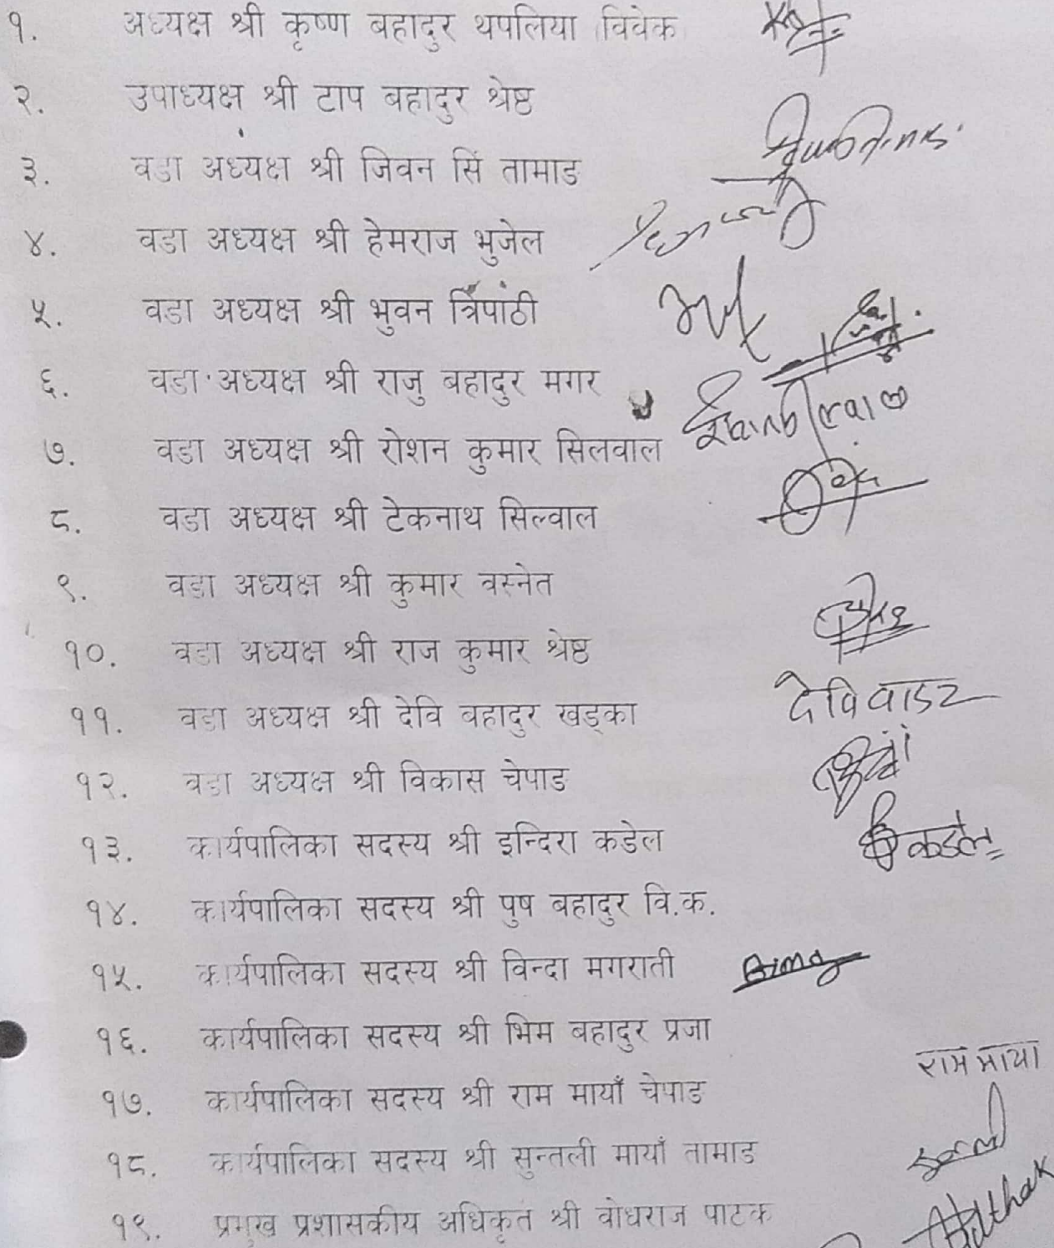 १. अध्यक्ष श्री कृष्ण बहादुर थपलिया विवेक
२. उपाध्यक्ष श्री टाप बहादुर श्रेष्ठ
३. वडा अध्यक्ष श्री जिवन सिं तामाङ
४. वडा अध्यक्ष श्री हेमराज भुजेल
५. वडा अध्यक्ष श्री भुवन त्रिपाठी
६. वडा अध्यक्ष श्री राजु बहादुर मगर
७. वडा अध्यक्ष श्री रोशन कुमार सिलवाल
८. वडा अध्यक्ष श्री टेकनाथ सिल्वाल
९. वडा अध्यक्ष श्री कुमार वस्नेत
१०. वडा अध्यक्ष श्री राज कुमार श्रेष्ठ
११. वडा अध्यक्ष श्री देवि बहादुर खड्का
१२. वडा अध्यक्ष श्री विकास चेपाङ
१३. कार्यपालिका सदस्य श्री इन्दिरा कडेल कडेल
१४. कार्यपालिका सदस्य श्री पुष बहादुर वि.क.
१५. कार्यपालिका सदस्य श्री विन्दा मगराती
१६. कार्यपालिका सदस्य श्री भिम बहादुर प्रजा
राम माया
१७. कार्यपालिका सदस्य श्री राम मायाँ चेपाङ
१८. कार्यपालिका सदस्य श्री सुन्तली मायाँ तामाङ
१९. प्रमुख प्रशासकीय अधिकृत श्री वोधराज पाठक